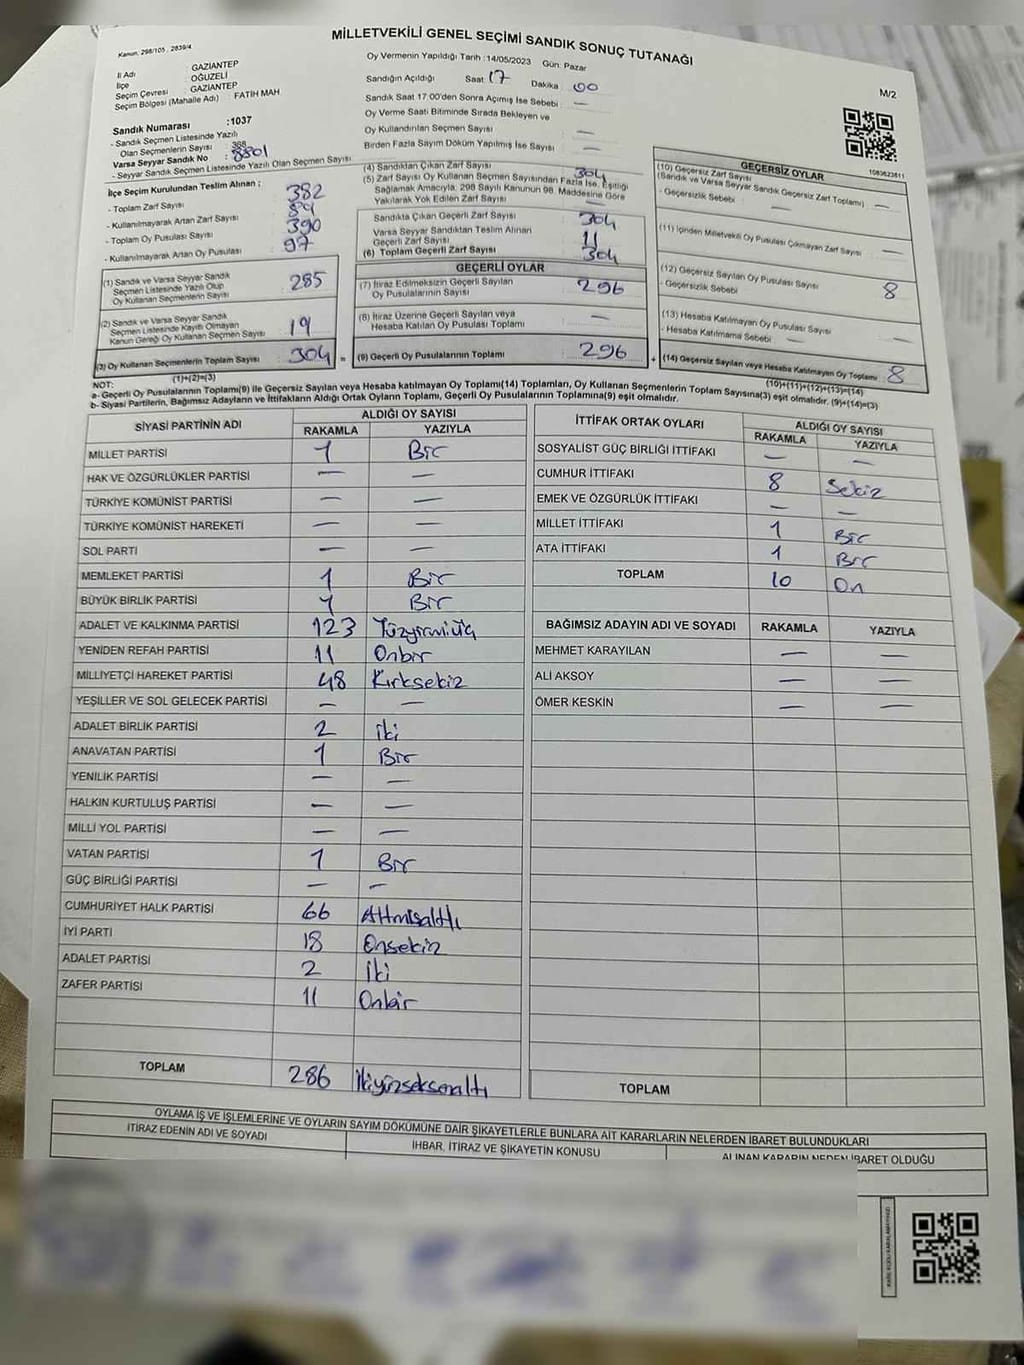 MİLLETVEKİLİ GENEL SEÇİMİ SANDIK SONUÇ TUTANAĞI
Kanun, 298/105 , 2839/4
M/2
İl Adı GAZİANTEP
İlçe OĞUZELİ
Seçim Çevresi GAZİANTEP
Seçim Bölgesi (Mahalle Adı) : FATİH MAH
Oy Vermenin Yapıldığı Tarih :14/05/2023 Gün: Pazar
Sandığın Açıldığı Saat 17 Dakika 00
Sandık Saat 17:00'den Sonra Açımış İse Sebebi : —
Oy Verme Saati Bitiminde Sırada Bekleyen ve
Oy Kullandırılan Seçmen Sayısı —
Birden Fazla Sayım Döküm Yapılmış İse Sayısı : —
Sandık Numarası :1037
- Sandık Seçmen Listesinde Yazılı
Olan Seçmenlerin Sayısı : 368
Varsa Seyyar Sandık No : 8801
- Seyyar Sandık Seçmen Listesinde Yazılı Olan Seçmen Sayısı :
İlçe Seçim Kurulundan Teslim Alınan ;
- Toplam Zarf Sayısı 382
- Kullanılmayarak Artan Zarf Sayısı
- Toplam Oy Pusulası Sayısı 390
- Kullanılmayarak Artan Oy Pusulası 97
(1) Sandık ve Varsa Seyyar Sandık
Seçmen Listesinde Yazılı Olup
Oy Kullanan Seçmenlerin Sayısı 285
(2) Sandık ve Varsa Seyyar Sandık
Seçmen Listesinde Kaydı Olmayan
Kanun Gereği Oy Kullanan Seçmen Sayısı 19
(3) Oy Kullanan Seçmenlerin Toplam Sayısı 304 =
(1)+(2)=(3)
(4) Sandıktan Çıkan Zarf Sayısı 304
(5) Zarf Sayısı Oy Kullanan Seçmen Sayısından Fazla İse, Eşitliği
Sağlamak Amacıyla, 298 Sayılı Kanunun 98. Maddesine Göre
Yakılarak Yok Edilen Zarf Sayısı —
Sandıkta Çıkan Geçerli Zarf Sayısı 304
Varsa Seyyar Sandıktan Teslim Alınan
Geçerli Zarf Sayısı 11
(6) Toplam Geçerli Zarf Sayısı 304
GEÇERLİ OYLAR
(7) İtiraz Edilmeksizin Geçerli Sayılan
Oy Pusulalarının Sayısı 296
(8) İtiraz Üzerine Geçerli Sayılan veya
Hesaba Katılan Oy Pusulası Toplamı —
(9) Geçerli Oy Pusulalarının Toplamı 296 +
1083623611
GEÇERSİZ OYLAR
(10) Geçersiz Zarf Sayısı
(Sandık ve Varsa Seyyar Sandık Geçersiz Zarf Toplamı) —
- Geçersizlik Sebebi —
(11) İçinden Milletvekili Oy Pusulası Çıkmayan Zarf Sayısı —
(12) Geçersiz Sayılan Oy Pusulası Sayısı 8
- Geçersizlik Sebebi
(13) Hesaba Katılmayan Oy Pusulası Sayısı
- Hesaba Katılmama Sebebi — —
(14) Geçersiz Sayılan veya Hesaba Katılmayan Oy Toplamı 8
(10)+(11)+(12)+(13)=(14)
NOT:
a- Geçerli Oy Pusulalarının Toplamı(9) ile Geçersiz Sayılan veya Hesaba katılmayan Oy Toplamı(14) Toplamları, Oy Kullanan Seçmenlerin Toplam Sayısına(3) eşit olmalıdır. (9)+(14)=(3)
b- Siyasi Partilerin, Bağımsız Adayların ve İttifakların Aldığı Ortak Oyların Toplamı, Geçerli Oy Pusulalarının Toplamına(9) eşit olmalıdır.
SİYASİ PARTİNİN ADI ALDIĞI OY SAYISI
RAKAMLA YAZIYLA
MİLLET PARTİSİ 1 Bir
HAK VE ÖZGÜRLÜKLER PARTİSİ — —
TÜRKİYE KOMÜNİST PARTİSİ — —
TÜRKİYE KOMÜNİST HAREKETİ — —
SOL PARTİ — —
MEMLEKET PARTİSİ 1 Bir
BÜYÜK BİRLİK PARTİSİ 1 Bir
ADALET VE KALKINMA PARTİSİ 123 Yüzyirmiüç
YENİDEN REFAH PARTİSİ 11 Onbir
MİLLİYETÇİ HAREKET PARTİSİ 48 Kırksekiz
YEŞİLLER VE SOL GELECEK PARTİSİ — —
ADALET BİRLİK PARTİSİ 2 İki
ANAVATAN PARTİSİ 1 Bir
YENİLİK PARTİSİ — —
HALKIN KURTULUŞ PARTİSİ — —
MİLLİ YOL PARTİSİ — —
VATAN PARTİSİ 1 Bir
GÜÇ BİRLİĞİ PARTİSİ — —
CUMHURİYET HALK PARTİSİ 66 Altmışaltı
İYİ PARTİ 18 Onsekiz
ADALET PARTİSİ 2 İki
ZAFER PARTİSİ 11 Onbir
TOPLAM 286 İkiyüzseksenaltı
İTTİFAK ORTAK OYLARI ALDIĞI OY SAYISI
RAKAMLA YAZIYLA
SOSYALİST GÜÇ BİRLİĞİ İTTİFAKI — —
CUMHUR İTTİFAKI 8 Sekiz
EMEK VE ÖZGÜRLÜK İTTİFAKI — —
MİLLET İTTİFAKI 1 Bir
ATA İTTİFAKI 1 Bir
TOPLAM 10 On
BAĞIMSIZ ADAYIN ADI VE SOYADI RAKAMLA YAZIYLA
MEHMET KARAYILAN — —
ALİ AKSOY — —
ÖMER KESKİN — —
TOPLAM
OYLAMA İŞ VE İŞLEMLERİNE VE OYLARIN SAYIM DÖKÜMÜNE DAİR ŞİKAYETLERLE BUNLARA AİT KARARLARIN NELERDEN İBARET BULUNDUKLARI
İTİRAZ EDENİN ADI VE SOYADI İHBAR, İTİRAZ VE ŞİKAYETİN KONUSU ALINAN KARARIN NEDEN İBARET OLDUĞU